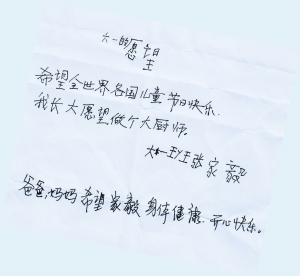 六一的愿望
希望全世界各国儿童节日快乐.
我长大愿望做个大厨师。
大一班张家毅
爸爸,妈妈希望家毅身体健康.开心快乐。